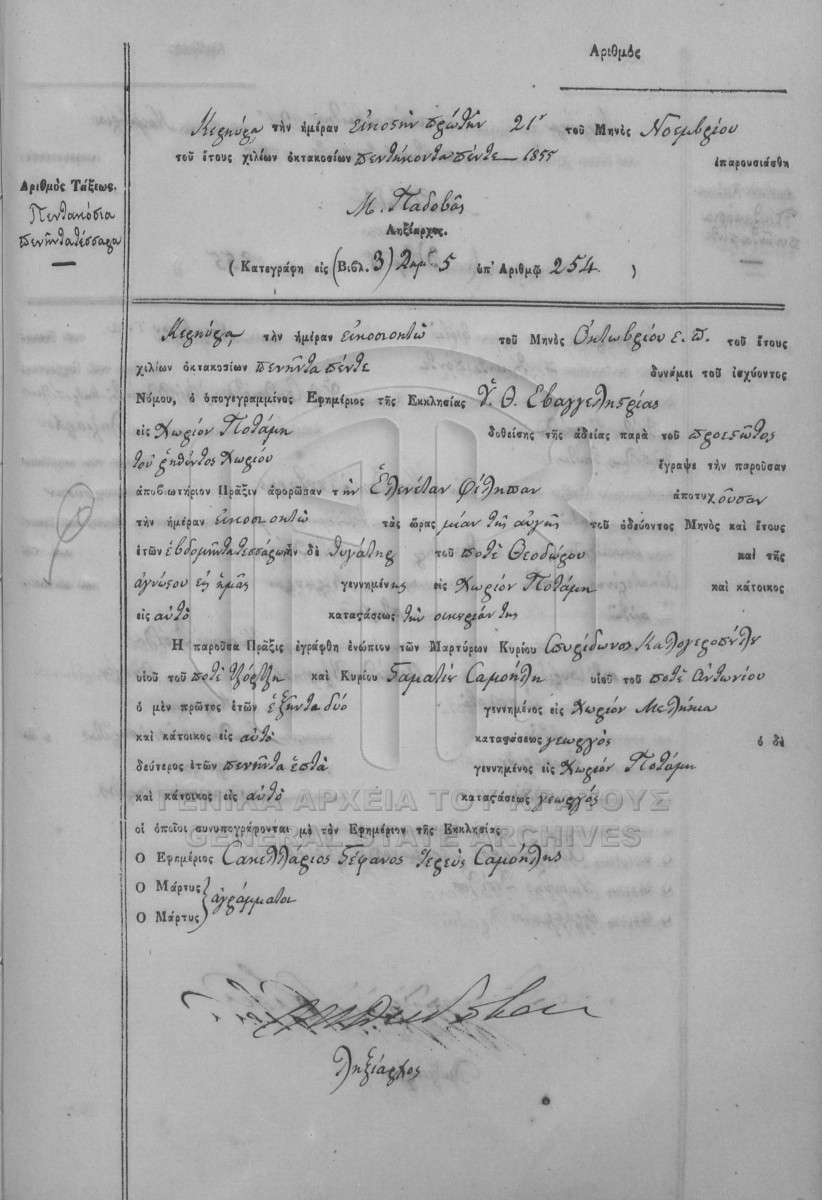 Αριθμὸς
Κερκύρα τὴν ἡμέραν εἰκοστὴν πρώτην 21ην τοῦ Μηνὸς Νοεμβρίου
τοῦ ἔτους χιλίων ὀκτακοσίων πεντήκοντα πέντε 1855 ἐπαρουσιάσθη
Ἀριθμὸς Τάξεως.
Πεντακόσια
πενῆντα τέσσαρα
Μ. Παδοβᾶς
Ληξίαρχος.
( Κατεγράφη εἰς (Βιβλ. 3) 5 ὑπ' Ἀριθμῷ 254. )
Κερκύρα τὴν ἡμέραν εἰκοσιοκτὼ τοῦ Μηνὸς Ὀκτωβρίου ε. π. τοῦ ἔτους
χιλίων ὀκτακοσίων πενῆντα πέντε δυνάμει τοῦ ἰσχύοντος
Νόμου, ὁ ὑπογεγραμμένος Ἐφημέριος τῆς Ἐκκλησίας Ὑ. Θ. Εβαγγελιστρίας
εἰς Χωρίον Ποτάμη δοθείσης τῆς ἀδείας παρὰ τοῦ προεστῶτος
τοῦ ῥηθέντος Χωρίου ἔγραψε τὴν παροῦσαν
ἀποβιωτήριον Πρᾶξιν ἀφορῶσαν τὴν Ἑλενέταν Φίλιππαν ἀποτυχοῦσαν
τὴν ἡμέραν εἰκοσιοκτὼ τὰς ὥρας μίαν τῆς αὐγῆς τοῦ ὁδεύοντος Μηνὸς καὶ ἔτους
ἐτῶν ἑβδομῆντα τεσσάρων ἦν δὲ θυγάτηρ τοῦ ποτὲ Θεοδώρου καὶ τῆς
ἀγνώστου εἰς ἡμᾶς γεννημένης εἰς Χωρίον Ποτάμη καὶ κάτοικος
εἰς αὐτὸ καταστάσεως τὴν οἰκειρίαν της
Ἡ παροῦσα Πρᾶξις ἐγράφθη ἐνώπιον τῶν Μαρτύρων Κυρίου Σπυρίδωνος Καλογεροπούλου
υἱοῦ τοῦ ποτὲ Τζόρτζη καὶ Κυρίου Σταματίου Σαμοήλη υἱοῦ τοῦ ποτὲ Ἀντωνίου
ὁ μὲν πρῶτος ἐτῶν ἑξῆντα δύο γεννημένος εἰς Χωρίον Μελήκια
καὶ κάτοικος εἰς αὐτὸ καταστάσεως γεωργὸς ὁ δὲ
δεύτερος ἐτῶν πενῆντα ἑπτὰ γεννημένος εἰς Χωρίον Ποτάμη
καὶ κάτοικος εἰς αὐτὸ καταστάσεως γεωργὸς
ΓΕΝΙΚΑ ΑΡΧΕΙΑ ΤΟΥ ΚΡΑΤΟΥΣ
οἱ ὁποῖοι συνυπογράφονται μὲ τὸν Ἐφημέριον τῆς Ἐκκλησίας
GENERAL STATE ARCHIVES
Ὁ Ἐφημέριος Σακελλάριος Στέφανος Ἱερεὺς Σαμοήλης
Ὁ Μάρτυς
ἀγράμματοι
Ὁ Μάρτυς
Ληξίαρχος